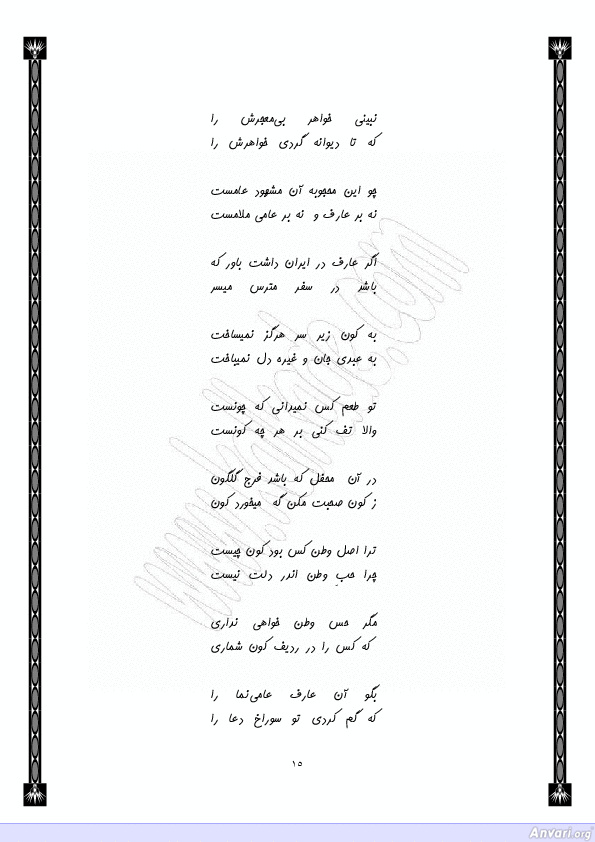 نبینی خواهر بی‌معجرش را
که تا دیوانه گردی خواهرش را
چو این محجوبه آن مشهود عامست
نه بر عارف و نه بر عامی ملامست
اگر عارف در ایران داشت باور که
باشد در سفر مترس میسر
به کون زیر سر هرگز نمیساخت
به عبدی جان و غیره دل نمیباخت
تو طعم کس نمیدانی که چونست
والا تف کنی بر هر چه کونست
در آن محفل که باشد فرج گلگون
ز کون صحبت مکن گه میخورد کون
ترا اصل وطن کس بود کون چیست
چرا حبِ وطن اندر دلت نیست
مگر حس وطن خواهی نداری
که کس را در ردیف کون شماری
بگو آن عارف عامی‌نما را
که گم کردی تو سوراخ دعا را
١٥
Anvari.org